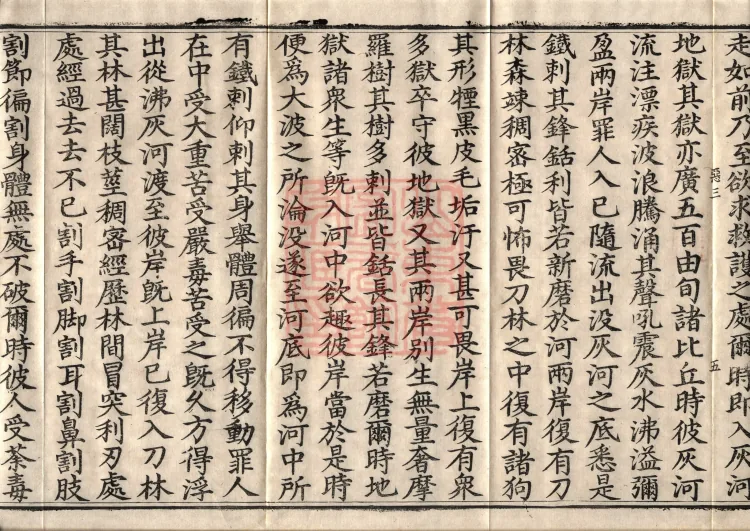 走如前乃至欲求救護之處爾時即入灰河
惡三 五
地獄其獄亦廣五百由旬諸比丘時彼灰河
流注漂疾波浪騰涌其聲吼震灰水沸溢彌
盈兩岸罪人入已隨流出没灰河之底悉是
鐵刺其鋒銛利皆若新磨於河兩岸復有刀
林森竦稠密極可怖畏刀林之中復有諸狗
其形㹻黑皮毛垢汙又甚可畏岸上復有衆
多獄卒守彼地獄又其兩岸别生無量奢摩
羅樹其樹多刺並皆銛長其鋒若磨爾時地
獄諸衆生等旣入河中欲趣彼岸當於是時
便爲大波之所淪没遂至河底即爲河中所
有鐵刺仰刺其身舉體周徧不得移動罪人
在中受大重苦受嚴毒苦受之旣久方得浮
出從沸灰河渡至彼岸旣上岸已復入刀林
其林甚闊枝莖稠密經歷林間冒突利刃處
處經過去去不已割手割脚割耳割鼻割肢
割節徧割身體無處不破爾時彼人受荼毒